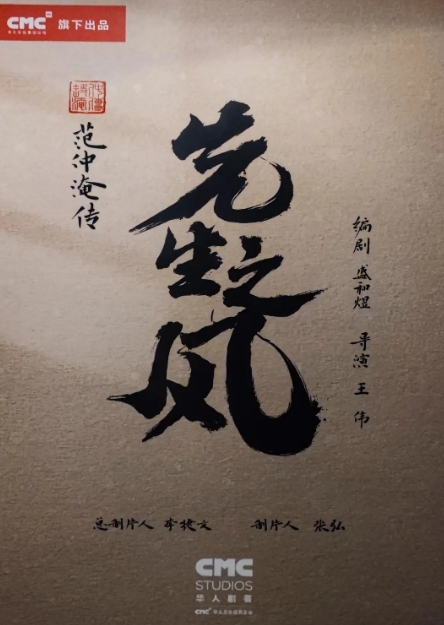 CMC 旗下出品
范仲淹传
先生之风
编剧 盛和煜 导演 王伟
总制片人 李捷文 制片人 张弘
CMC
STUDIOS
华人影著